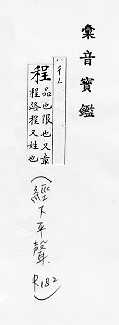 彙音寶鑑
程
品也限也又章
程路程又姓也
(經大平聲
P.182)